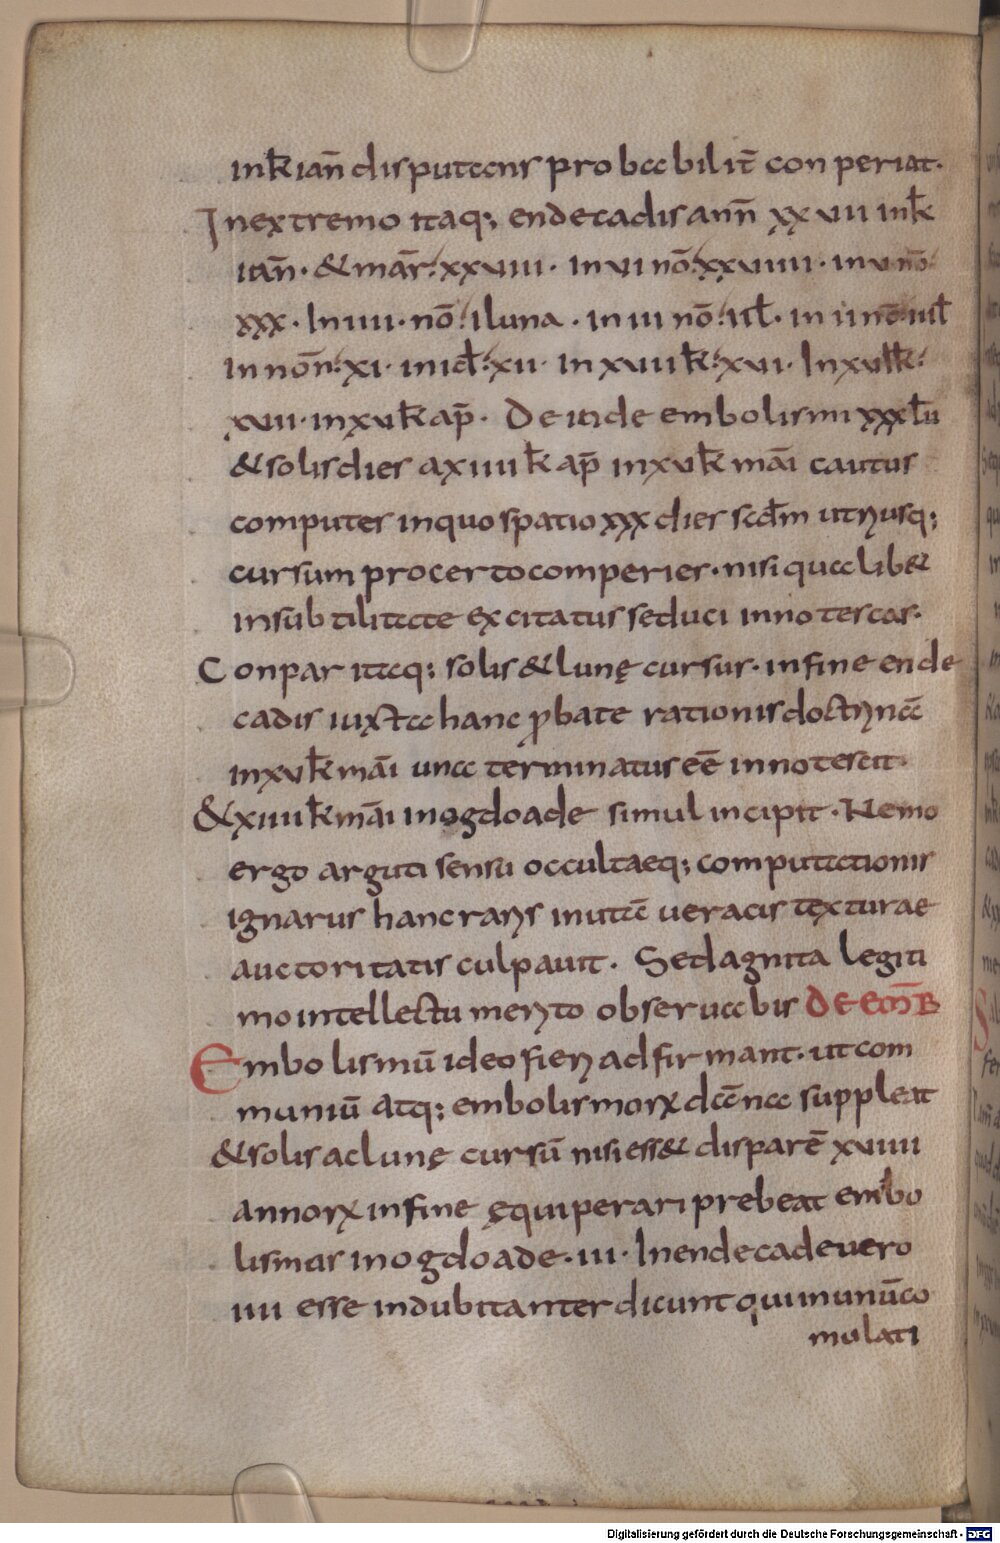 ink̅ ian̅ disputans probabilit̅ conperiat·
In extremo itaq; endecadis ann̅ xxviii ink̅
ian̅· & mar̅· xxviiii· in vi no̅· xxviiii· in v no̅·
xxx· In iiii· no̅· i luna· in iii no̅· iil̅· in ii no̅· iiil̅
in non̅· xi· in id̅· xii· in xviii k̅· xvi· In xvii k̅·
xvii· in xvi k̅ ap̅· De inde embolismi xxx lu̅
& solis dies a xiiii k̅ ap̅ in xv k̅ mai̅ cautus
computes in quo spatio xxx dies scd̅m utriusq;
cursum pro certo comperies· nisi qua lib&
insubtilitate excitatus seduci innotescas·
Conpar itaq; solis & lunę cursus· in fine ende
cadis iuxta hanc ꝓbate rationis doctrina̅
in xv k̅ mai̅ una terminatus ee̅ innotescit·
& xiiii k̅ mai̅ in ogdoade simul incipit· Nemo
ergo arguti sensu occultaeq; computationis
ignarus hanc raris inuta̅ ueracis texturae
auctoritatis culpauit· Sed agnita legiti
mo intellectu merito obseruabis DE EOM̅B
Embolismu̅ ideo fieri adfirmant· ut com
muniu̅ atq; embolismorꝝ dca̅ na suppleat
& solis ac lunę cursu̅ nisi ess& dispare̅ xviiii
annorꝝ in fine ęquiperari prebeat embo
lismas in ogdoade· iii· In endecade uero
iiii esse indubitanter dicunt qui in unu̅ co
mulati
Digitalisierung gefördert durch die Deutsche Forschungsgemeinschaft - DFG